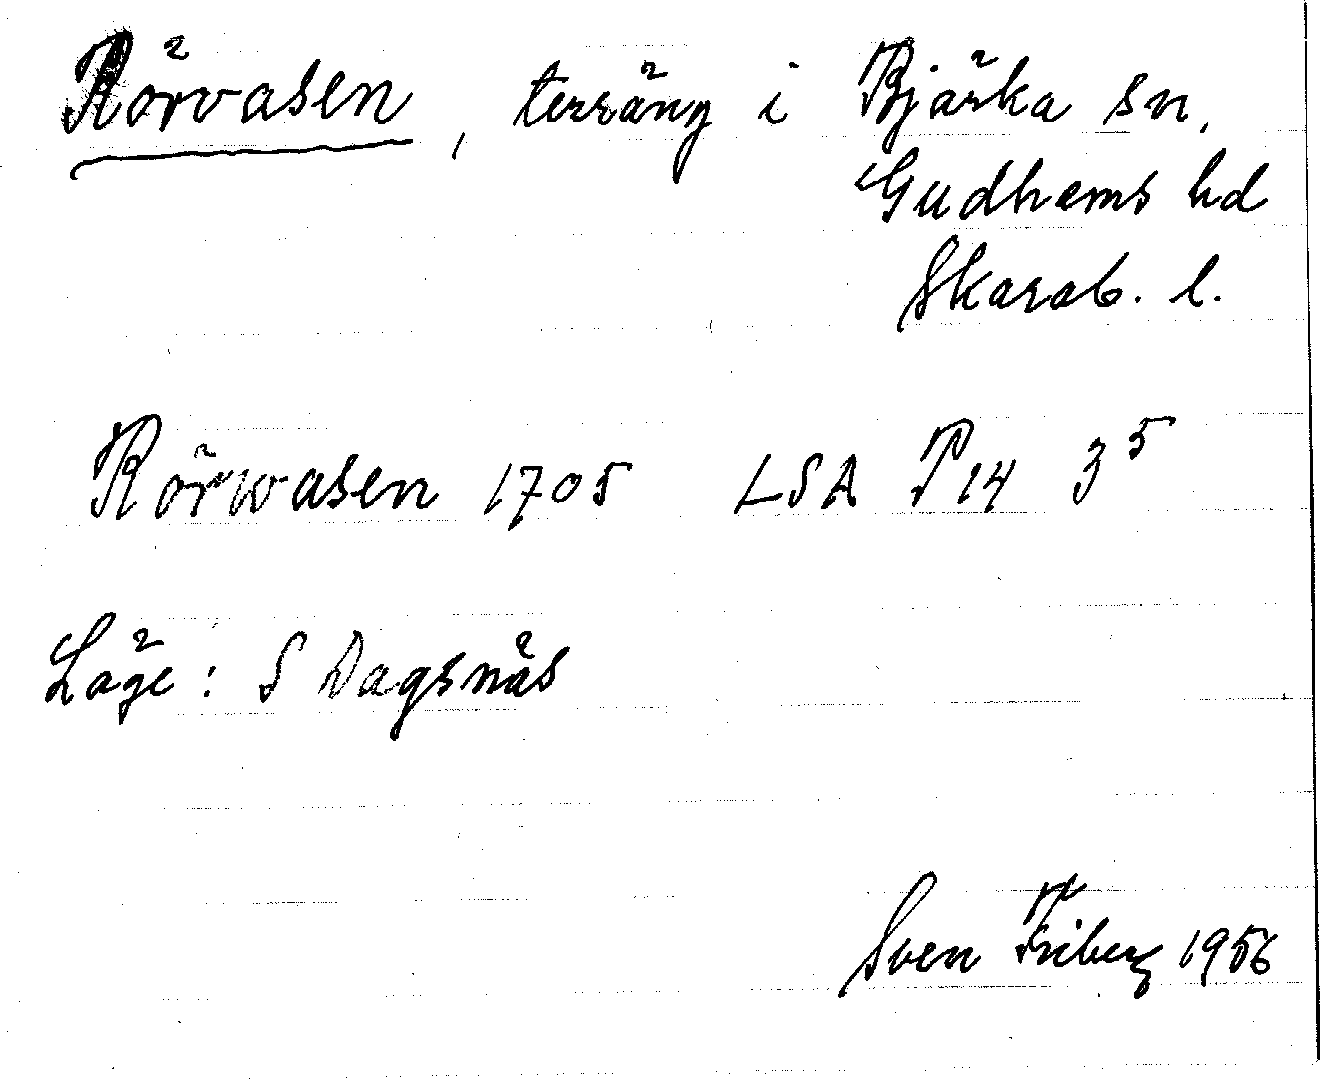 Rörvasen, terräng i Bjärka sn,
Gudhems hd
Skarab. l.
Rörwasen 1705 LSA P14 3⁵
Läge: S Dagsnäs
Sven Friberg 1956